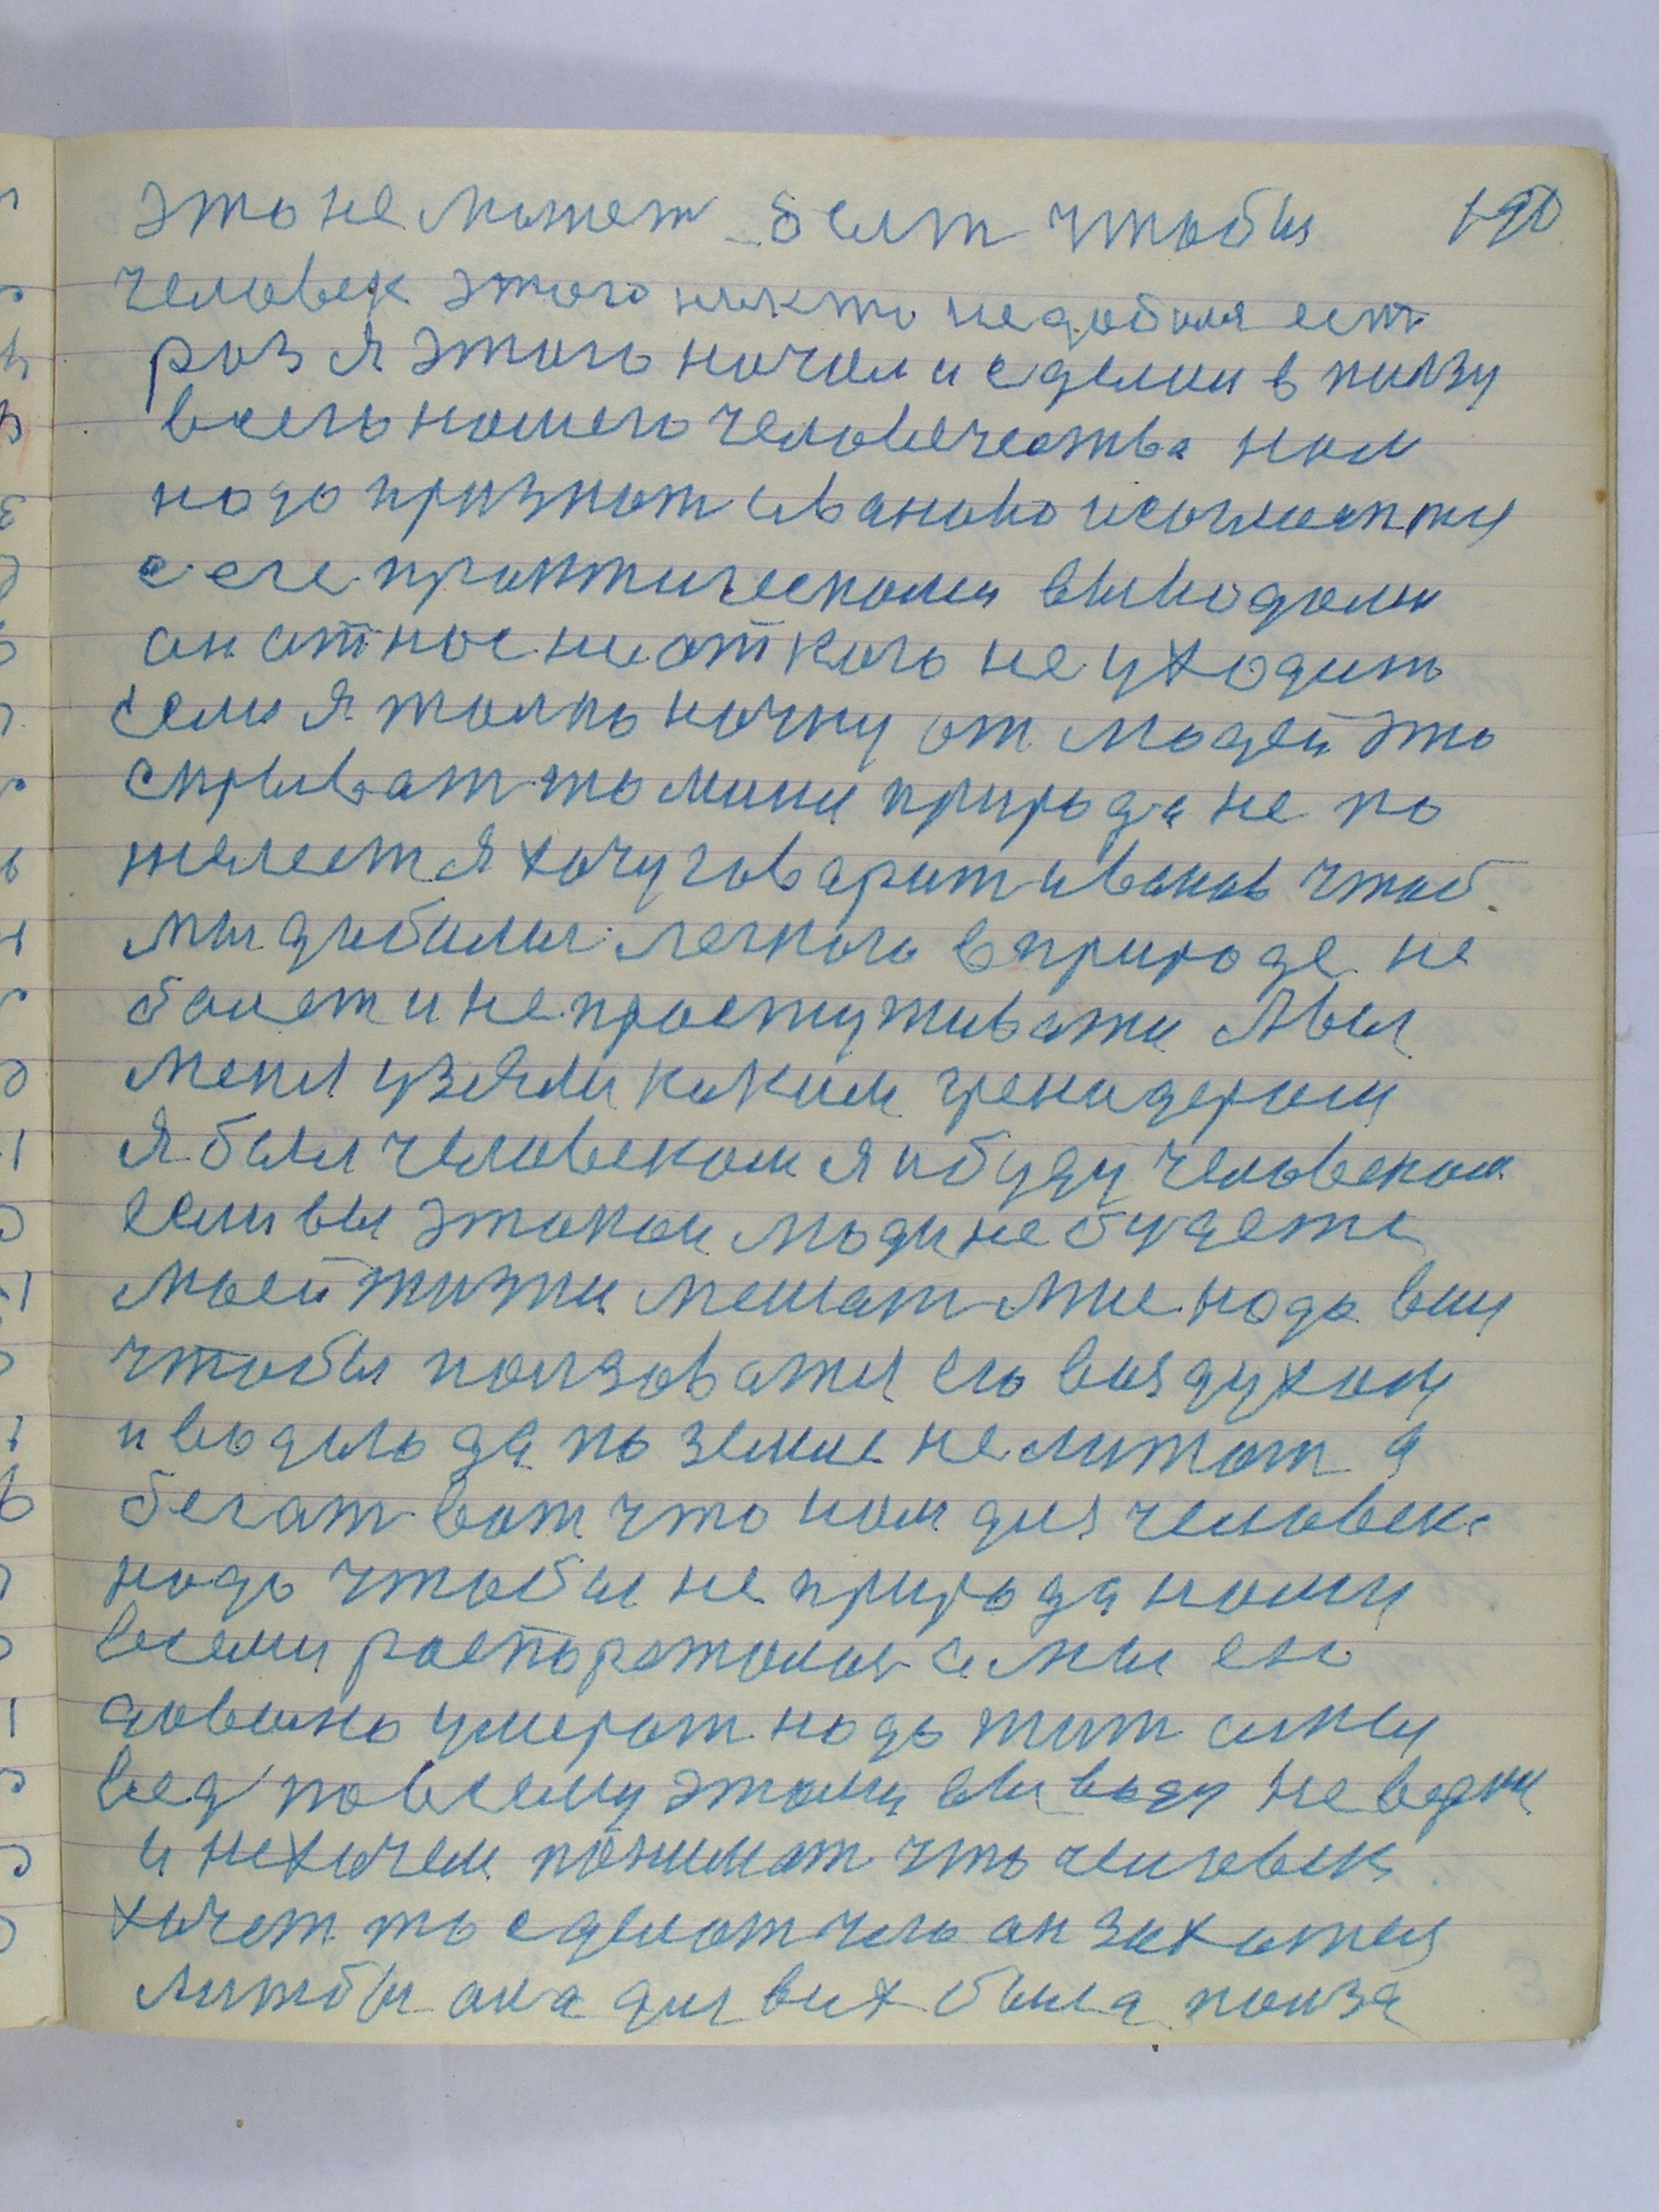 это не может быт чтобы 190
человек этого никто не добился ест
раз я этого начал и сделал в ползу
всего нашего человечества нам
надо признат иванова и согласится
с его практическами выводами
он от нас ни от кого не уходить
если я толко начну от людей это
скриват то мини природа не по
жилеет я хочу говарит иванов чтоб
мы добилис легкого в природе не
болет и не простуживатся А вы
меня узяли каким гренадером
я был человеком я и буду человеком
если вы этаком люди не будете
моей жизни мешат мне надо вии
чтобы ползоватся его воздухом
и водою да по земле не литат а
бегат вот что нам для человека
надо чтобы не природа нами
всеми распоряжалас а мы ею
довольно умират надо жит а мы
вед по всему этому выводу не ведим
и не хочем понимат что человек
хочет то сделат чего он захотел
лижбы она для всих была полза